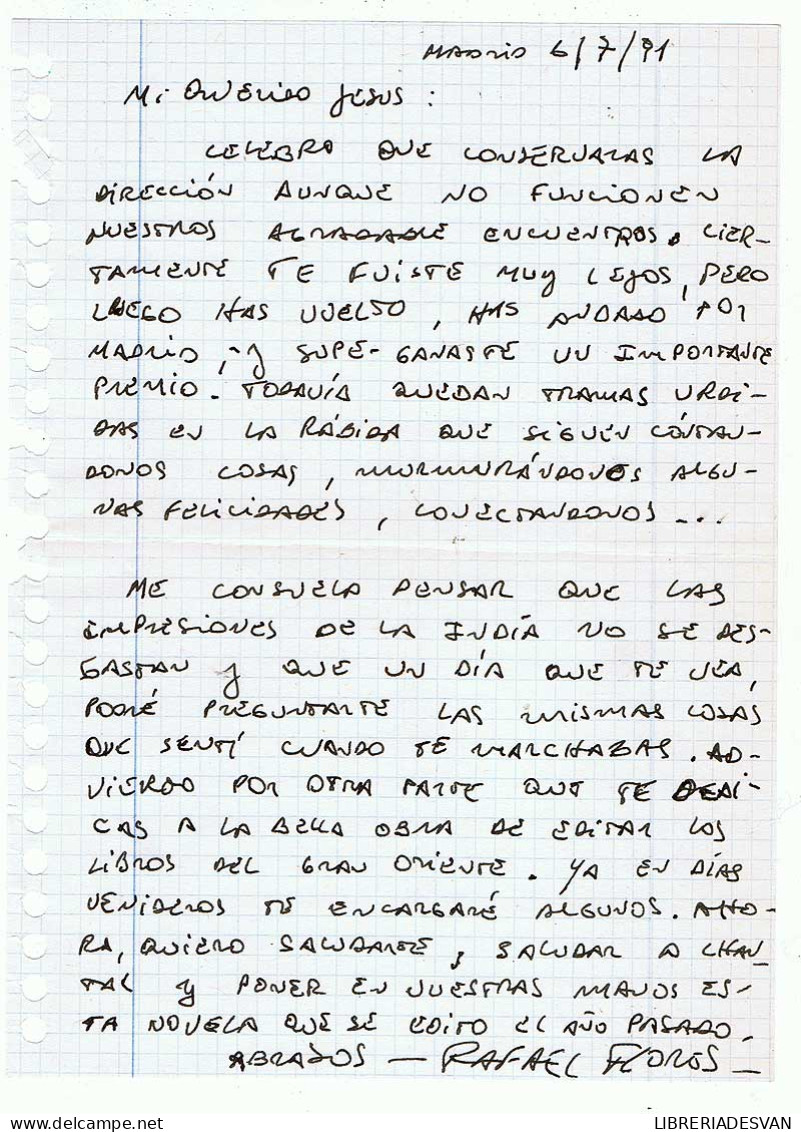 MADRID 6/7/91
Mi QUERIDO JESUS:
CELEBRO QUE CONSERVARAS LA
DIRECCIÓN AUNQUE NO FUNCIONEN
NUESTROS AGRADABLE ENCUENTROS. CIER-
TAMENTE TE FUISTE MUY LEJOS, PERO
LUEGO HAS VUELTO, HAS ANDADO POR
MADRID, Y SUPE-GANASTE UN IMPORTANTE
PREMIO. TODAVÍA QUEDAN TRAMAS URDI-
DAS EN LA RÁBIDA QUE SIGUEN CÓNTAN-
DONOS COSAS, MURMURÁNDONOS ALGU-
NAS FELICIDADES, CONECTANDONOS ...
ME CONSUELA PENSAR QUE LAS
IMPRESIONES DE LA INDÍA NO SE DES-
GASTAN Y QUE UN DÍA QUE TE VEA,
PODRÉ PREGUNTARTE LAS MISMAS COSAS
QUE SENTÍ CUANDO TE MARCHABAS. AD-
VIERDO POR OTRA PARTE QUE TE DEDI-
CAS A LA BELLA OBRA DE EDITAR LOS
LIBROS DEL GRAN ORIENTE. YA EN DÍAS
VENIDEROS TE ENCARGARÉ ALGUNOS. AHO-
RA, QUIERO SALUDARTE, SALUDAR A CHAN
TAL Y PONER EN VUESTRAS MANOS ES-
TA NOVELA QUE SE EDITO EL AÑO PASADO.
ABRAZOS — RAFAEL FLORES —
LIBRERIADESVAN
delcampe.net